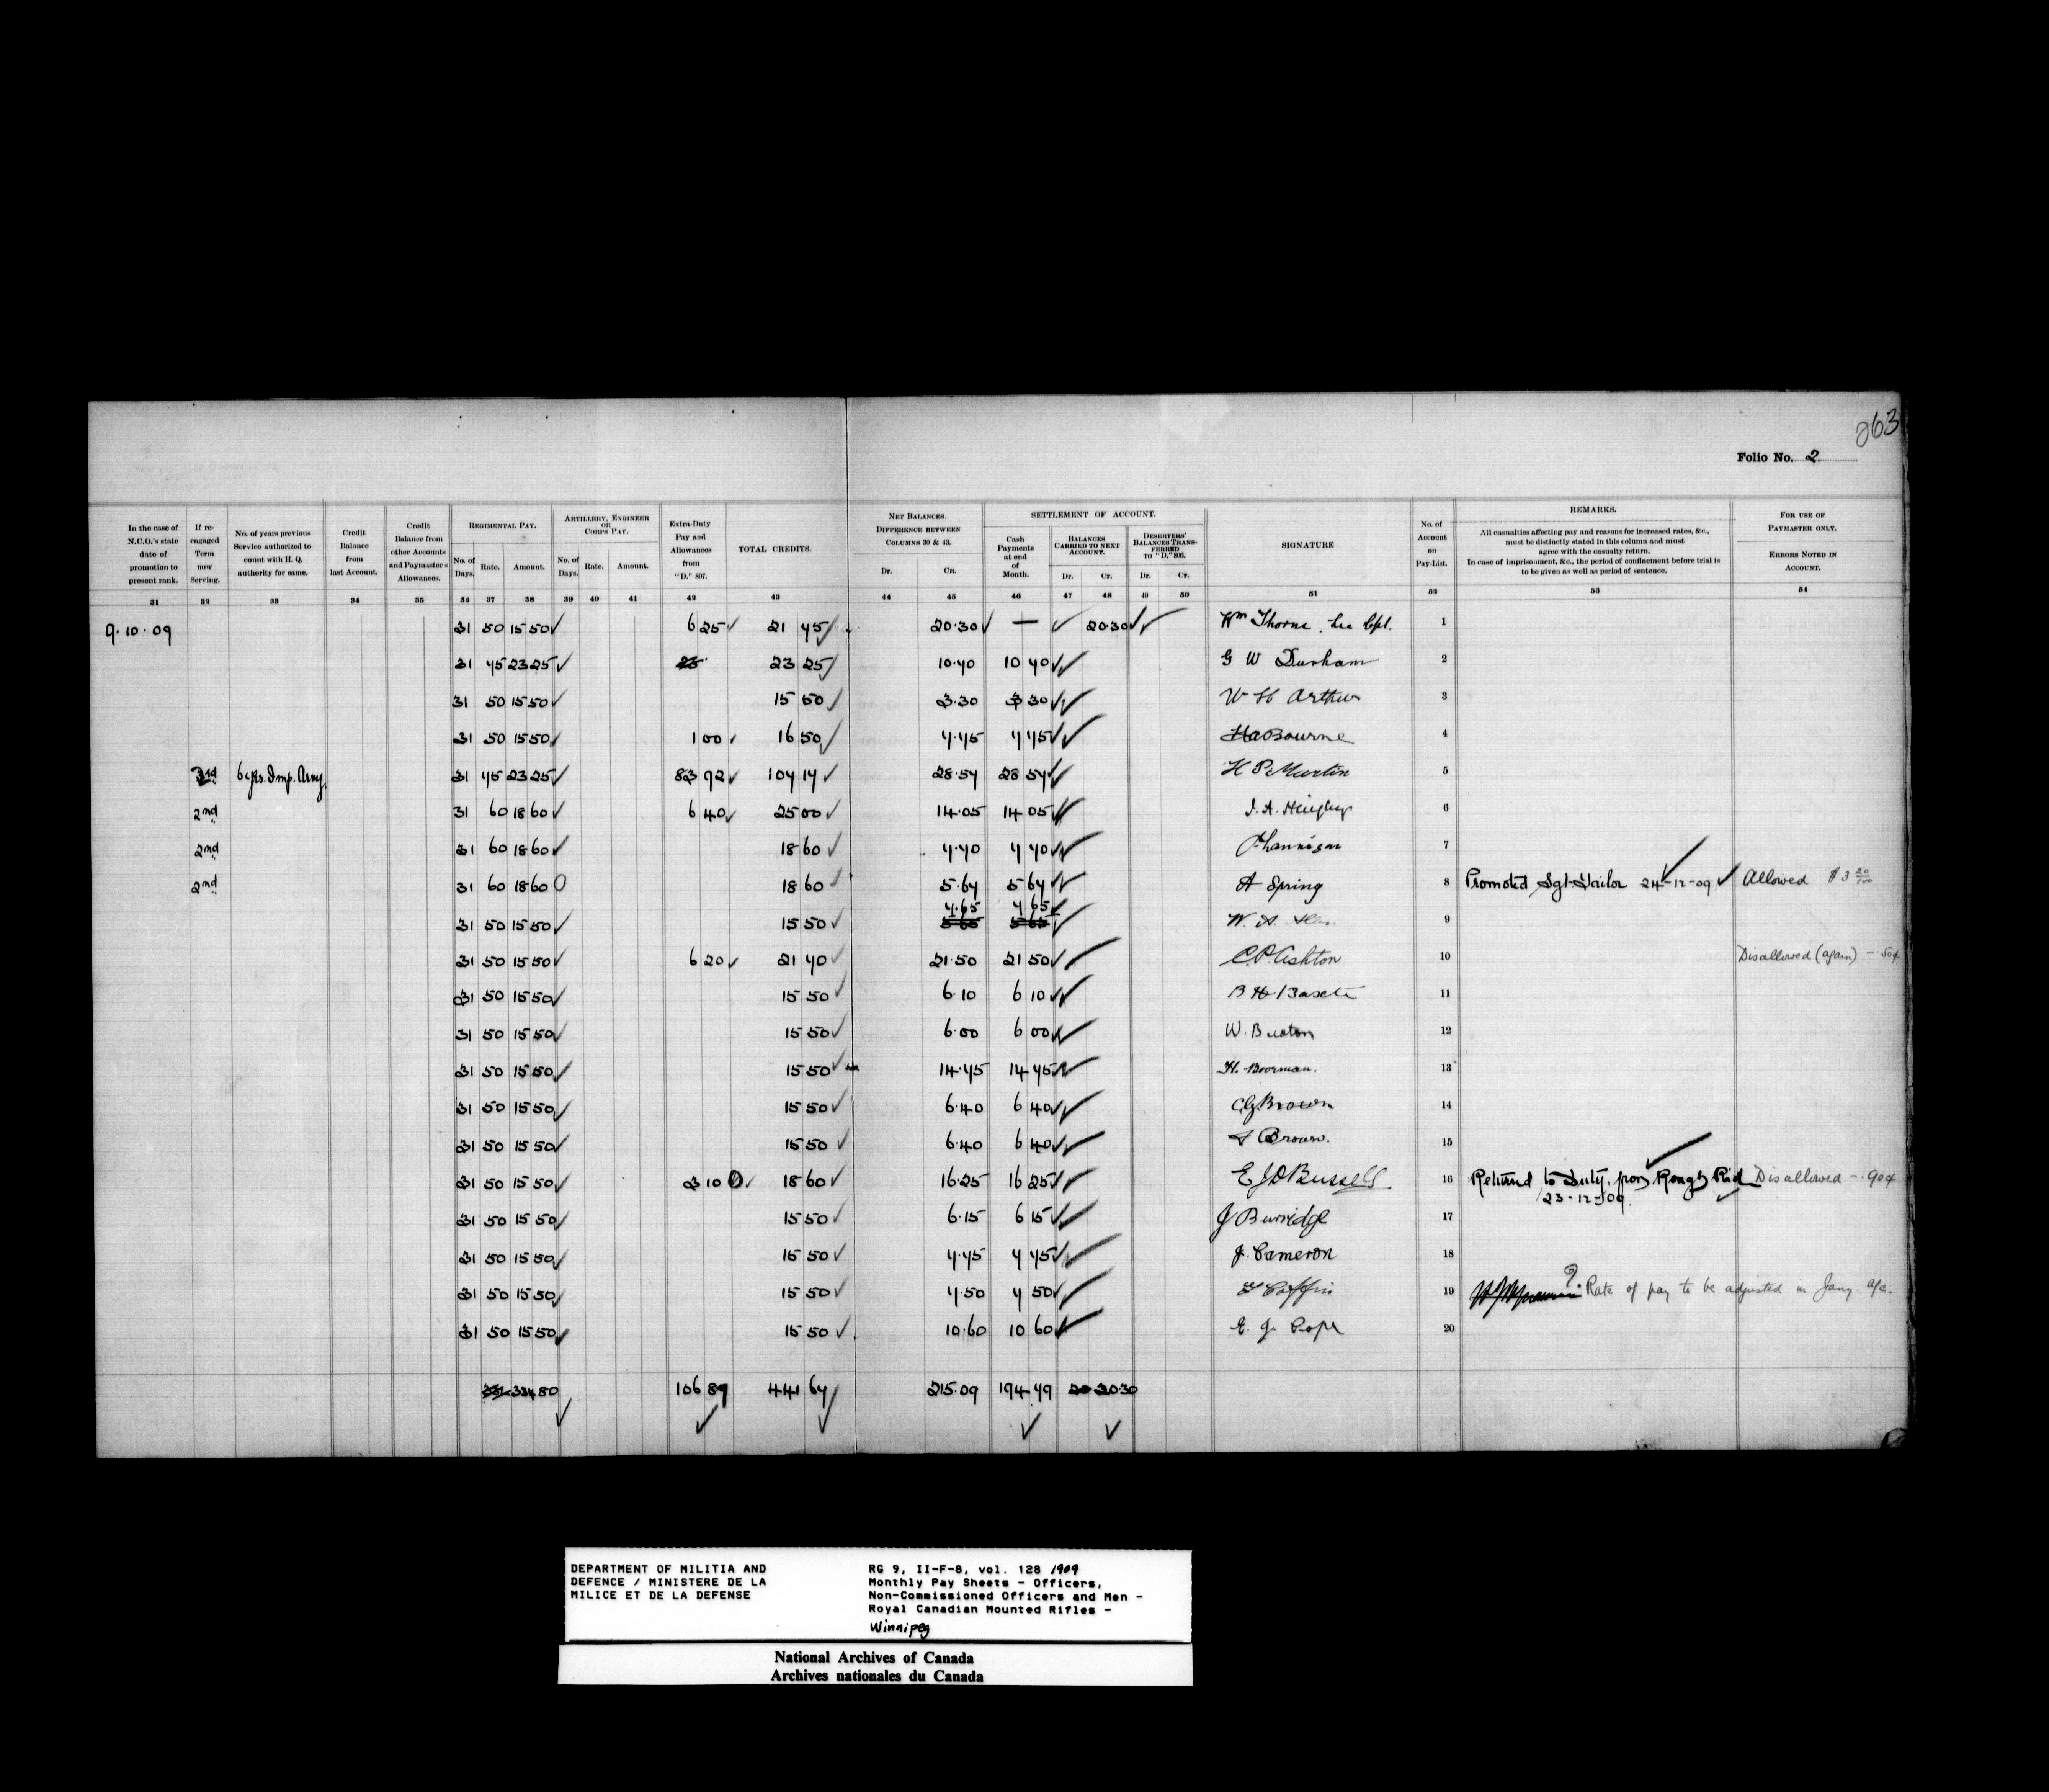 263
Folio No. 2
In the case of N.C.O.'s state date of promotion to present rank.
If re-engaged Term now Serving.
No. of years previous Service authorized to count with H. Q. authority for same.
Credit Balance from last Account.
Credit Balance from other Accounts and Paymaster's Allowances.
REGIMENTAL PAY.
No. of Days. Rate. Amount.
ARTILLERY, ENGINEER OR CORPS PAY.
No. of Days. Rate. Amount.
Extra-Duty Pay and Allowances from "D." 807.
TOTAL CREDITS.
NET BALANCES. DIFFERENCE BETWEEN COLUMNS 30 & 43.
Dr. Cr.
SETTLEMENT OF ACCOUNT.
Cash Payments at end of Month.
BALANCES CARRIED TO NEXT ACCOUNT.
Dr. Cr.
DESERTERS' BALANCES TRANSFERRED TO "D," 806.
Dr. Cr.
SIGNATURE
No. of Account on Pay-List.
REMARKS.
All casualties affecting pay and reasons for increased rates, &c., must be distinctly stated in this column and must agree with the casualty return.
In case of imprisonment, &c., the period of confinement before trial is to be given as well as period of sentence.
FOR USE OF PAYMASTER ONLY.
ERRORS NOTED IN ACCOUNT.
31 32 33 34 35 36 37 38 39 40 41 42 43 44 45 46 47 48 49 50 51 52 53 54
9.10.09 31 50 15 50 6 25 21 45 20.30 — 20.30 Wm Thorne 1
31 45 23 25 23 25 10.40 10 40 G W Durham 2
31 50 15 50 15 50 3.30 3 30 W H Arthur 3
31 50 15 50 1 00 16 50 4.45 4 45 Bourne 4
3rd 6 yrs. Imp. Army. 31 45 23 25 83 92 104 14 28.54 28 54 H P Martin 5
2nd 31 60 18 60 6 40 25 00 14.05 14 05 6
2nd 31 60 18 60 18 60 4.40 4 40 7
2nd 31 60 18 60 18 60 5.64 5 64 A Spring 8 Promoted Sgt-Tailor 24-12-09 Allowed $3 20/100
31 50 15 50 15 50 4.65 4 65 W. A. 9
31 50 15 50 6 20 21 40 21.50 21 50 C.P. Ashton 10 Disallowed (again) - 50¢
31 50 15 50 15 50 6.10 6 10 B H 11
31 50 15 50 15 50 6.00 6 00 W. Buxton 12
31 50 15 50 15 50 14.45 14 45 H. Boorman. 13
31 50 15 50 15 50 6.40 6 40 Brown 14
31 50 15 50 15 50 6.40 6 40 Brown. 15
31 50 15 50 3 10 18 60 16.25 16 25 E J D Bussell 16 Returned to Duty, from Rough Rid Disallowed - .90¢
23-12-09
31 50 15 50 15 50 6.15 6 15 J Burridge 17
31 50 15 50 15 50 4.45 4 45 J. Cameron 18
31 50 15 50 15 50 4.50 4 50 Coffin 19 ? Rate of pay to be adjusted in Jany. a/c.
31 50 15 50 15 50 10.60 10 60 E. J. Cope 20
334 80 106 89 441 64 215.09 194 49 20 30
DEPARTMENT OF MILITIA AND
DEFENCE / MINISTERE DE LA
MILICE ET DE LA DEFENSE
RG 9, II-F-8, vol. 128 1909
Monthly Pay Sheets - Officers,
Non-Commissioned Officers and Men -
Royal Canadian Mounted Rifles -
Winnipeg
National Archives of Canada
Archives nationales du Canada